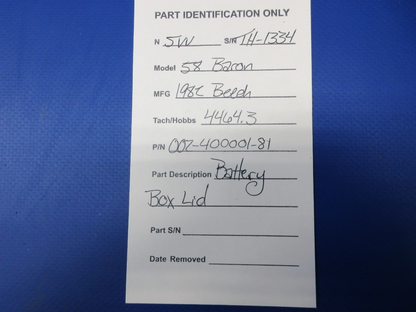 PART IDENTIFICATION ONLY
N 5W S/N TH-1334
Model 58 Baron
MFG 1982 Beech
Tach/Hobbs 4464.3
P/N 002-400001-81
Part Description Battery
Box Lid
Part S/N
Date Removed